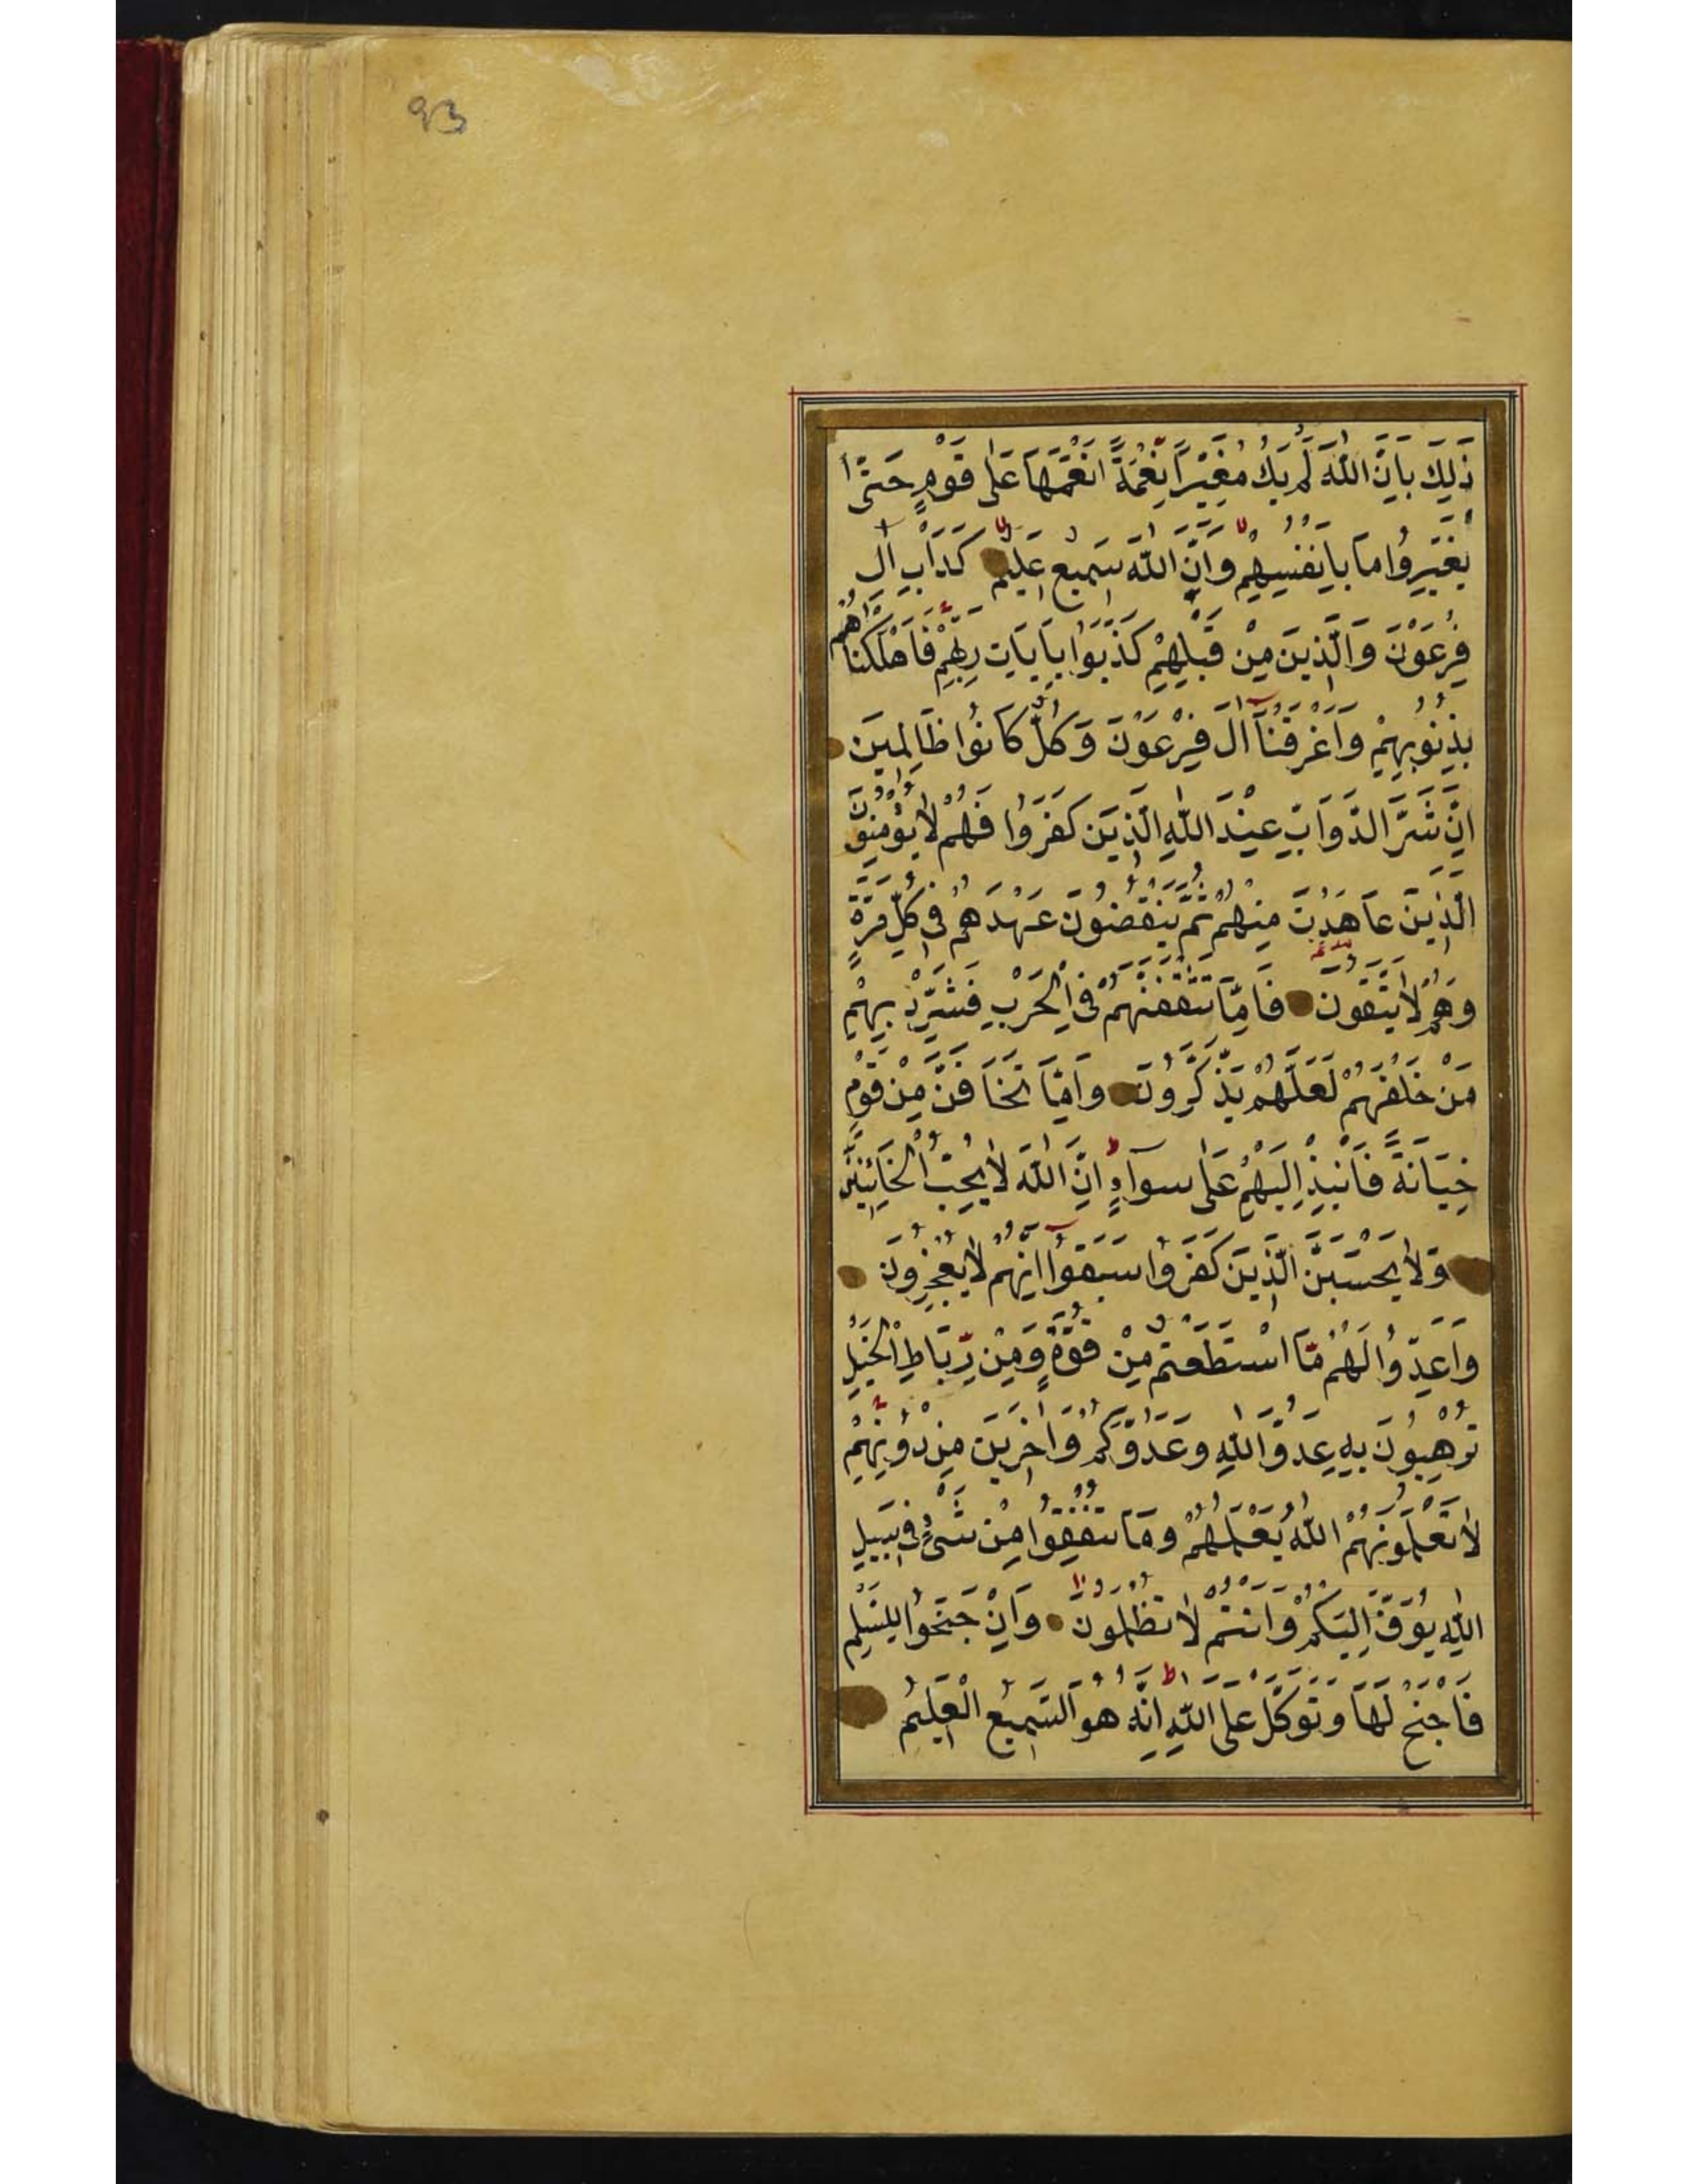 93
ذٰلِكَ بِاَنَّ اللّٰهَ لَمْ يَكُ مُغَيِّرًا نِعْمَةً اَنْعَمَهَا عَلٰى قَوْمٍ حَتّٰى
يُغَيِّرُوا مَا بِاَنْفُسِهِمْ وَاَنَّ اللّٰهَ سَمِيعٌ عَلِيمٌ كَدَاْبِ اٰلِ
فِرْعَوْنَ وَالَّذِينَ مِنْ قَبْلِهِمْ كَذَّبُوا بِاٰيَاتِ رَبِّهِمْ فَاَهْلَكْنَاهُمْ
بِذُنُوبِهِمْ وَاَغْرَقْنَآ اٰلَ فِرْعَوْنَ وَكُلٌّ كَانُوا ظَالِمِينَ
اِنَّ شَرَّ الدَّوَآبِّ عِنْدَ اللّٰهِ الَّذِينَ كَفَرُوا فَهُمْ لَا يُؤْمِنُونَ
الَّذِينَ عَاهَدْتَ مِنْهُمْ ثُمَّ يَنْقُضُونَ عَهْدَهُمْ فِى كُلِّ مَرَّةٍ
وَهُمْ لَا يَتَّقُونَ فَاِمَّا تَثْقَفَنَّهُمْ فِى الْحَرْبِ فَشَرِّدْ بِهِمْ
مَنْ خَلْفَهُمْ لَعَلَّهُمْ يَذَّكَّرُونَ وَاِمَّا تَخَافَنَّ مِنْ قَوْمٍ
خِيَانَةً فَانْبِذْ اِلَيْهِمْ عَلٰى سَوَآءٍ اِنَّ اللّٰهَ لَا يُحِبُّ الْخَآئِنِينَ
وَلَا يَحْسَبَنَّ الَّذِينَ كَفَرُوا سَبَقُوا اِنَّهُمْ لَا يُعْجِزُونَ
وَاَعِدُّوا لَهُمْ مَا اسْتَطَعْتُمْ مِنْ قُوَّةٍ وَمِنْ رِبَاطِ الْخَيْلِ
تُرْهِبُونَ بِهِ عَدُوَّ اللّٰهِ وَعَدُوَّكُمْ وَاٰخَرِينَ مِنْ دُونِهِمْ
لَا تَعْلَمُونَهُمْ اَللّٰهُ يَعْلَمُهُمْ وَمَا تُنْفِقُوا مِنْ شَىْءٍ فِى سَبِيلِ
اللّٰهِ يُوَفَّ اِلَيْكُمْ وَاَنْتُمْ لَا تُظْلَمُونَ وَاِنْ جَنَحُوا لِلسَّلْمِ
فَاجْنَحْ لَهَا وَتَوَكَّلْ عَلَى اللّٰهِ اِنَّهُ هُوَ السَّمِيعُ الْعَلِيمُ